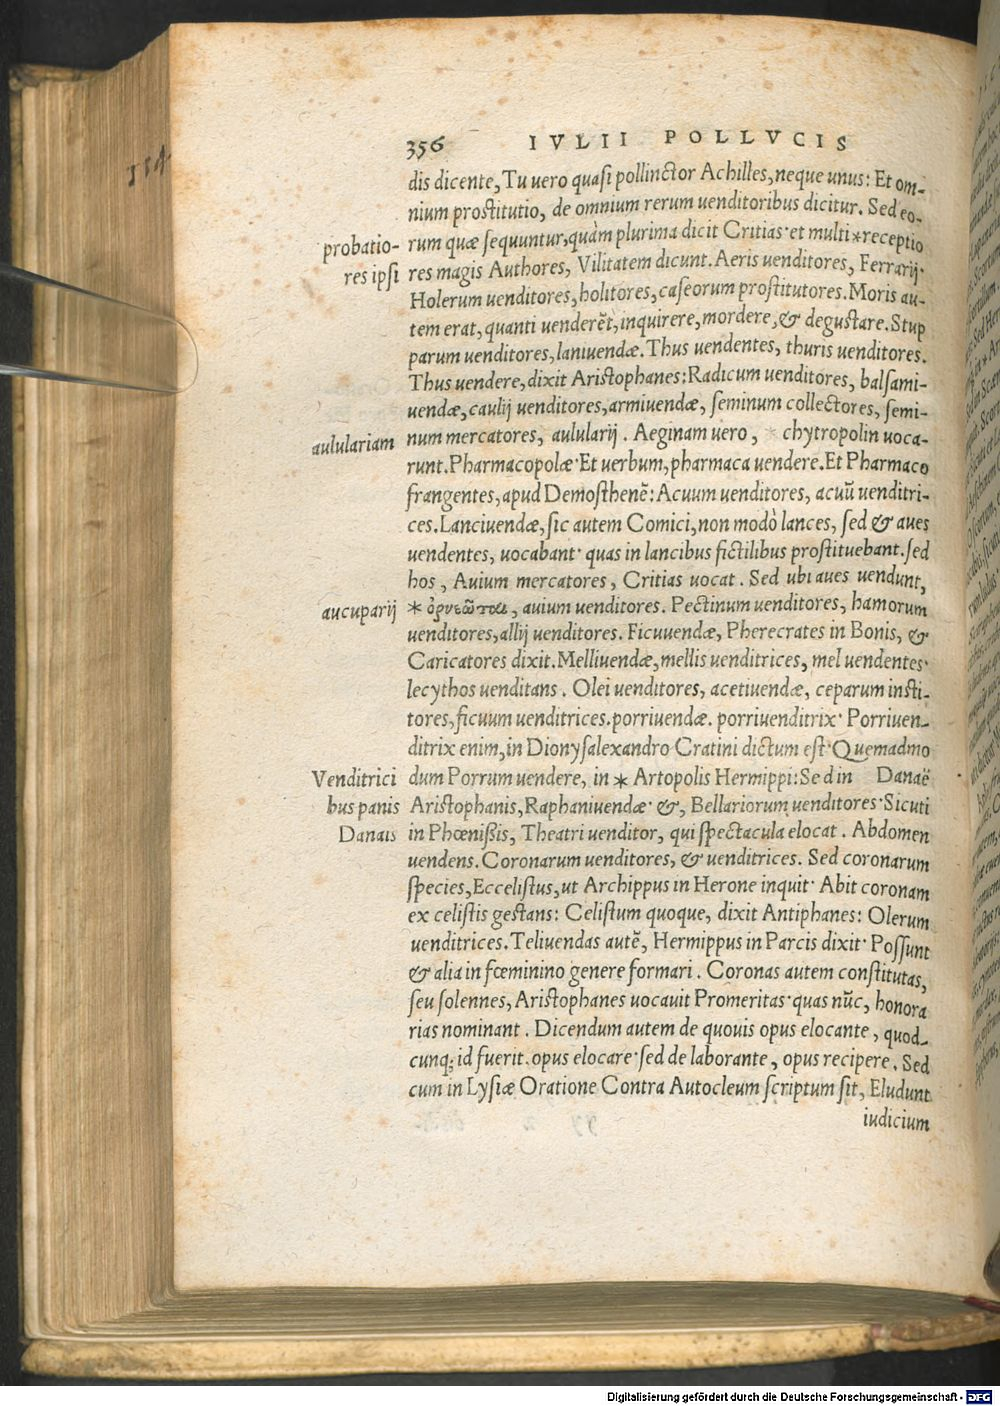 184
356 IVLII POLLVCIS
dis dicente, Tu uero quasi pollinctor Achilles, neque unus: Et om-
nium prostitutio, de omnium rerum uenditoribus dicitur. Sed eo-
probatio- rum quæ sequuntur, quàm plurima dicit Critias· et multi *receptio
res ipsi res magis Authores, Vilitatem dicunt. Aeris uenditores, Ferrarij·
Holerum uenditores, holitores, caseorum prostitutores. Moris au-
tem erat, quanti uenderēt, inquirere, mordere, & degustare. Stup
parum uenditores, laniuendæ. Thus uendentes, thuris uenditores.
Thus uendere, dixit Aristophanes: Radicum uenditores, balsami-
uendæ, caulij uenditores, armiuendæ, seminum collectores, semi-
aululariam num mercatores, aulularij. Aeginam uero, * chytropolin uoca-
runt. Pharmacopolæ· Et uerbum, pharmaca uendere. Et Pharmaco
frangentes, apud Demosthenē: Acuum uenditores, acuū uenditri-
ces. Lanciuendæ, sic autem Comici, non modò lances, sed & aues
uendentes, uocabant· quas in lancibus fictilibus prostituebant. sed
hos, Auium mercatores, Critias uocat. Sed ubi aues uendunt,
aucuparij * , auium uenditores. Pectinum uenditores, hamorum
uenditores, allij uenditores. Ficuuendæ, Pherecrates in Bonis, &
Caricatores dixit. Melliuendæ, mellis uenditrices, mel uendentes·
lecythos uenditans. Olei uenditores, acetiuendæ, ceparum insti-
tores, ficuum uenditrices. porriuendæ. porriuenditrix· Porriuen-
ditrix enim, in Dionysalexandro Cratini dictum est· Quemadmo
Venditrici dum Porrum uendere, in * Artopolis Hermippi: Sed in Danaë
bus panis Aristophanis, Raphaniuendæ· &, Bellariorum uenditores· Sicuti
Danais in Phœnißis, Theatri uenditor, qui spectacula elocat. Abdomen
uendens. Coronarum uenditores, & uenditrices. Sed coronarum
species, Eccelistus, ut Archippus in Herone inquit· Abit coronam
ex celistis gestans: Celistum quoque, dixit Antiphanes: Olerum
uenditrices. Teliuendas autē, Hermippus in Parcis dixit· Possunt
& alia in fœminino genere formari. Coronas autem constitutas,
seu solennes, Aristophanes uocauit Promeritas· quas nūc, honora
rias nominant. Dicendum autem de quouis opus elocante, quod-
cunq; id fuerit. opus elocare· sed de laborante, opus recipere. Sed
cum in Lysiæ Oratione Contra Autocleum scriptum sit, Eludunt
iudicium
Digitalisierung gefördert durch die Deutsche Forschungsgemeinschaft - DFG